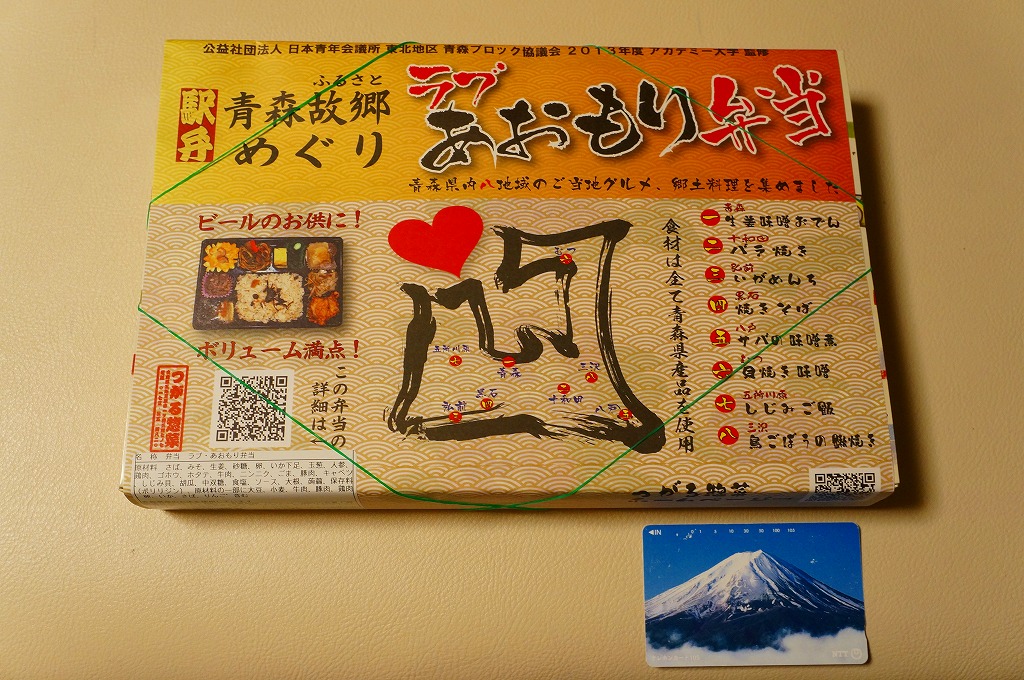 公益社団法人 日本青年会議所 東北地区 青森ブロック協議会 2013年度 アカデミー大学 監修
駅弁
ふるさと
青森故郷
めぐり
ラブ
あおもり弁当
青森県内八地域のご当地グルメ、郷土料理を集めました
ビールのお供に!
ボリューム満点!
この弁当の
詳細は→
つがる惣菜
むつ
六
五所川原
七
一
青森
三沢
八
黒石
四
弘前
三
二
十和田
八戸
五
食材は全て青森県産品を使用
青森
一 生姜味噌おでん
十和田
二 バラ焼き
弘前
三 いがめんち
黒石
四 焼きそば
八戸
五 サバの味噌煮
むつ
六 貝焼き味噌
五所川原
七 しじみご飯
三沢
八 鳥ごぼうの鍬焼き
名 称 弁当 ラブ・あおもり弁当
原材料 さば、みそ、生姜、砂糖、卵、いか下足、玉葱、人参、
鶏肉、ゴボウ、ホタテ、牛肉、ニンニク、ごま、豚肉、キャベツ
しじみ貝、胡瓜、中双糖、食塩、ソース、大根、蒟蒻、保存料
(ポリリジン) 原材料の一部に大豆、小麦、牛肉、豚肉、鶏肉
つがる惣菜
IN
0 1 5 10 30 50 100 105
テレホンカード105
NTT